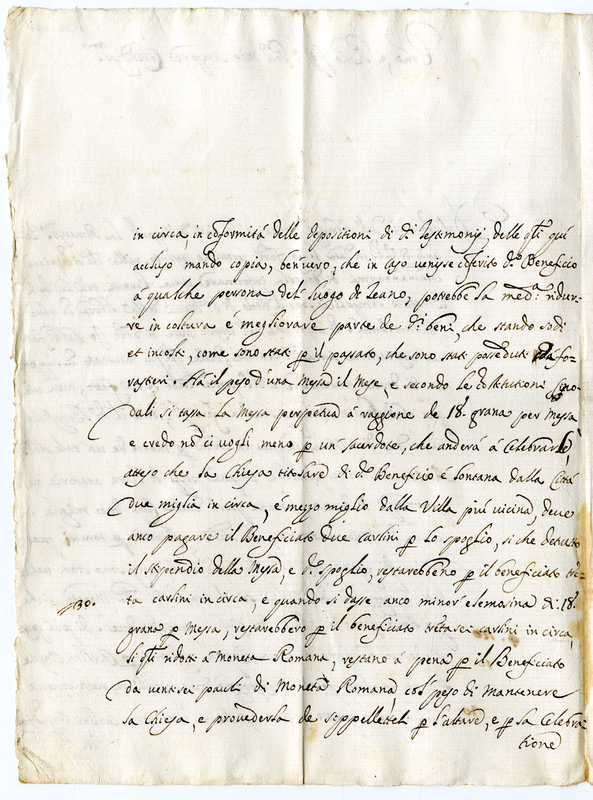 in circa, in cōformità delle depositioni di d.ⁱ Testimonij, delle q̄li qui
accluso mando copia, ben vero, che in caso venisse cōferito d.º Beneficio
à qualche persona del luogo di Teano, potrebbe la med.ª ridur-
re in coltura è megliorare parte de d.ⁱ beni, che stando sodi
et incolti, come sono stati p il passato, che sono stati posseduti da fo-
rastieri. Hà il peso d'una Messa il Mese, e secondo le Cōstitutioni Sino-
dali si tassa la Messa perpetua à raggione de 18. grana per Messa
e credo nō ci vogli meno p un sacerdote, che anderà à Celebrarle,
atteso che la Chiesa titolare di d.º Beneficio è lontana dalla Città
due miglia in circa, è mezzo miglio dalla Villa più vicina, deve
anco pagare il Beneficiato due carlini p lo spoglio, si che detratto
il stipendio della Messa, e d.º spoglio, restarebbeno p il beneficiato trē-
ta carlini in circa, e quando si dasse anco minor elemosina di 18.
grana p Messa, restarebbero p il beneficiato trētasei carlini in circa,
li q̄li ridotti à Moneta Romana, restano à pena p il Beneficiato
da ventisei pauli di Moneta Romana, col peso di mantenere
la Chiesa, e provederla de soppellettili p l'altare, e p la Celebra-
tione